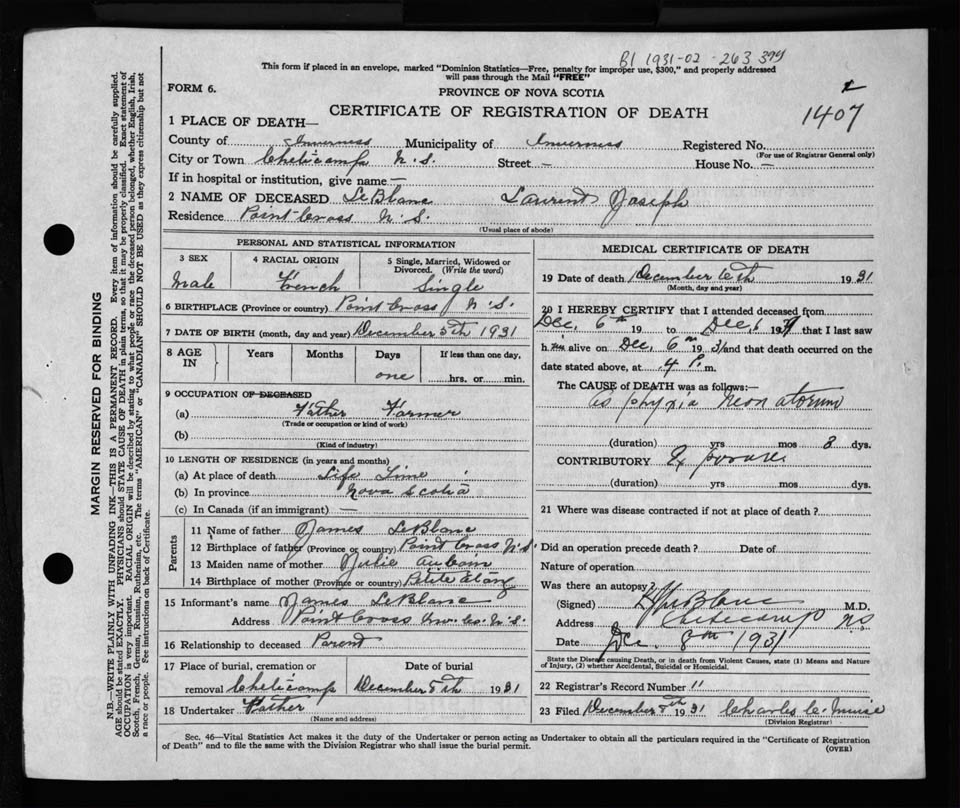 B1 1931-02-263 394
This form if placed in an envelope, marked "Dominion Statistics—Free, penalty for improper use, $300," and properly addressed
will pass through the Mail "FREE"
FORM 6.
PROVINCE OF NOVA SCOTIA
1407
CERTIFICATE OF REGISTRATION OF DEATH
1 PLACE OF DEATH—
County of Inverness Municipality of Inverness Registered No.
(For use of Registrar General only)
City or Town Cheticamp N.S. Street — House No. —
If in hospital or institution, give name —
2 NAME OF DECEASED LeBlanc Laurent Joseph
Residence Point Cross N.S.
(Usual place of abode)
PERSONAL AND STATISTICAL INFORMATION
3 SEX Male
4 RACIAL ORIGIN French
5 Single, Married, Widowed or Divorced. (Write the word) Single
6 BIRTHPLACE (Province or country) Point Cross N.S.
7 DATE OF BIRTH (month, day and year) December 5th 1931
8 AGE IN Years Months Days one If less than one day, hrs. or min.
9 OCCUPATION OF DECEASED
(a) Father Farmer
(Trade or occupation or kind of work)
(b)
(Kind of industry)
10 LENGTH OF RESIDENCE (in years and months)
(a) At place of death Life Time
(b) In province Nova Scotia
(c) In Canada (if an immigrant) —
Parents
11 Name of father James LeBlanc
12 Birthplace of father (Province or country) Point Cross N.S.
13 Maiden name of mother Julie Aucoin
14 Birthplace of mother (Province or country) Petite Etang
15 Informant's name James LeBlanc
Address Point Cross Inv. Co. N.S.
16 Relationship to deceased Parent
17 Place of burial, cremation or removal Cheticamp Date of burial December 8th 1931
18 Undertaker Father
(Name and address)
MEDICAL CERTIFICATE OF DEATH
19 Date of death December 6th 1931
(Month, day and year)
20 I HEREBY CERTIFY that I attended deceased from
Dec. 6th 19 to Dec. 6 1931 that I last saw
h im alive on Dec. 6th 1931 and that death occurred on the
date stated above, at 4 P. m.
The CAUSE of DEATH was as follows:—
Asphyxia Neonatorum
(duration) yrs mos dys.
CONTRIBUTORY Exposure
(duration) yrs mos dys.
21 Where was disease contracted if not at place of death?
Did an operation precede death? Date of
Nature of operation
Was there an autopsy?
(Signed) LeBlanc M.D.
Address Cheticamp NS
Date Dec. 8th 1931
State the Disease causing Death, or in death from Violent Causes, state (1) Means and Nature
of Injury, (2) whether Accidental, Suicidal or Homicidal.
22 Registrar's Record Number 11
23 Filed December 8th 1931 Charles C. Muise
(Division Registrar)
Sec. 46—Vital Statistics Act makes it the duty of the Undertaker or person acting as Undertaker to obtain all the particulars required in the "Certificate of Registration
of Death" and to file the same with the Division Registrar who shall issue the burial permit.
(OVER)
MARGIN RESERVED FOR BINDING
N.B.—WRITE PLAINLY WITH UNFADING INK—THIS IS A PERMANENT RECORD. Every item of information should be carefully supplied.
AGE should be stated EXACTLY. PHYSICIANS should STATE CAUSE OF DEATH in plain terms, so that it may be properly classified. Exact statement of
OCCUPATION is very important. RACIAL ORIGIN will be described by stating to what people or race the deceased person belonged, whether English, Irish,
Scotch, French, German, Russian, Ruthenian, etc. The terms "AMERICAN" or "CANADIAN" SHOULD NOT BE USED as they express citizenship but not
a race or people. See instructions on back of Certificate.